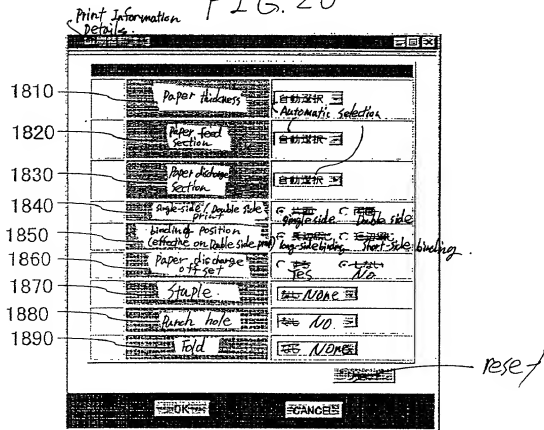 FIG. 20
Print Information
Details.
1810 Paper thickness 自動選択
Automatic selection
1820 Paper feed section 自動選択
1830 Paper discharge section 自動選択
1840 single-side / Double side print single side Double side
1850 binding Position (effective on Double side print) long-side binding short-side binding.
1860 Paper discharge offset Yes No
1870 Staple. None
1880 Punch hole No.
1890 Fold None
reset
OK CANCEL